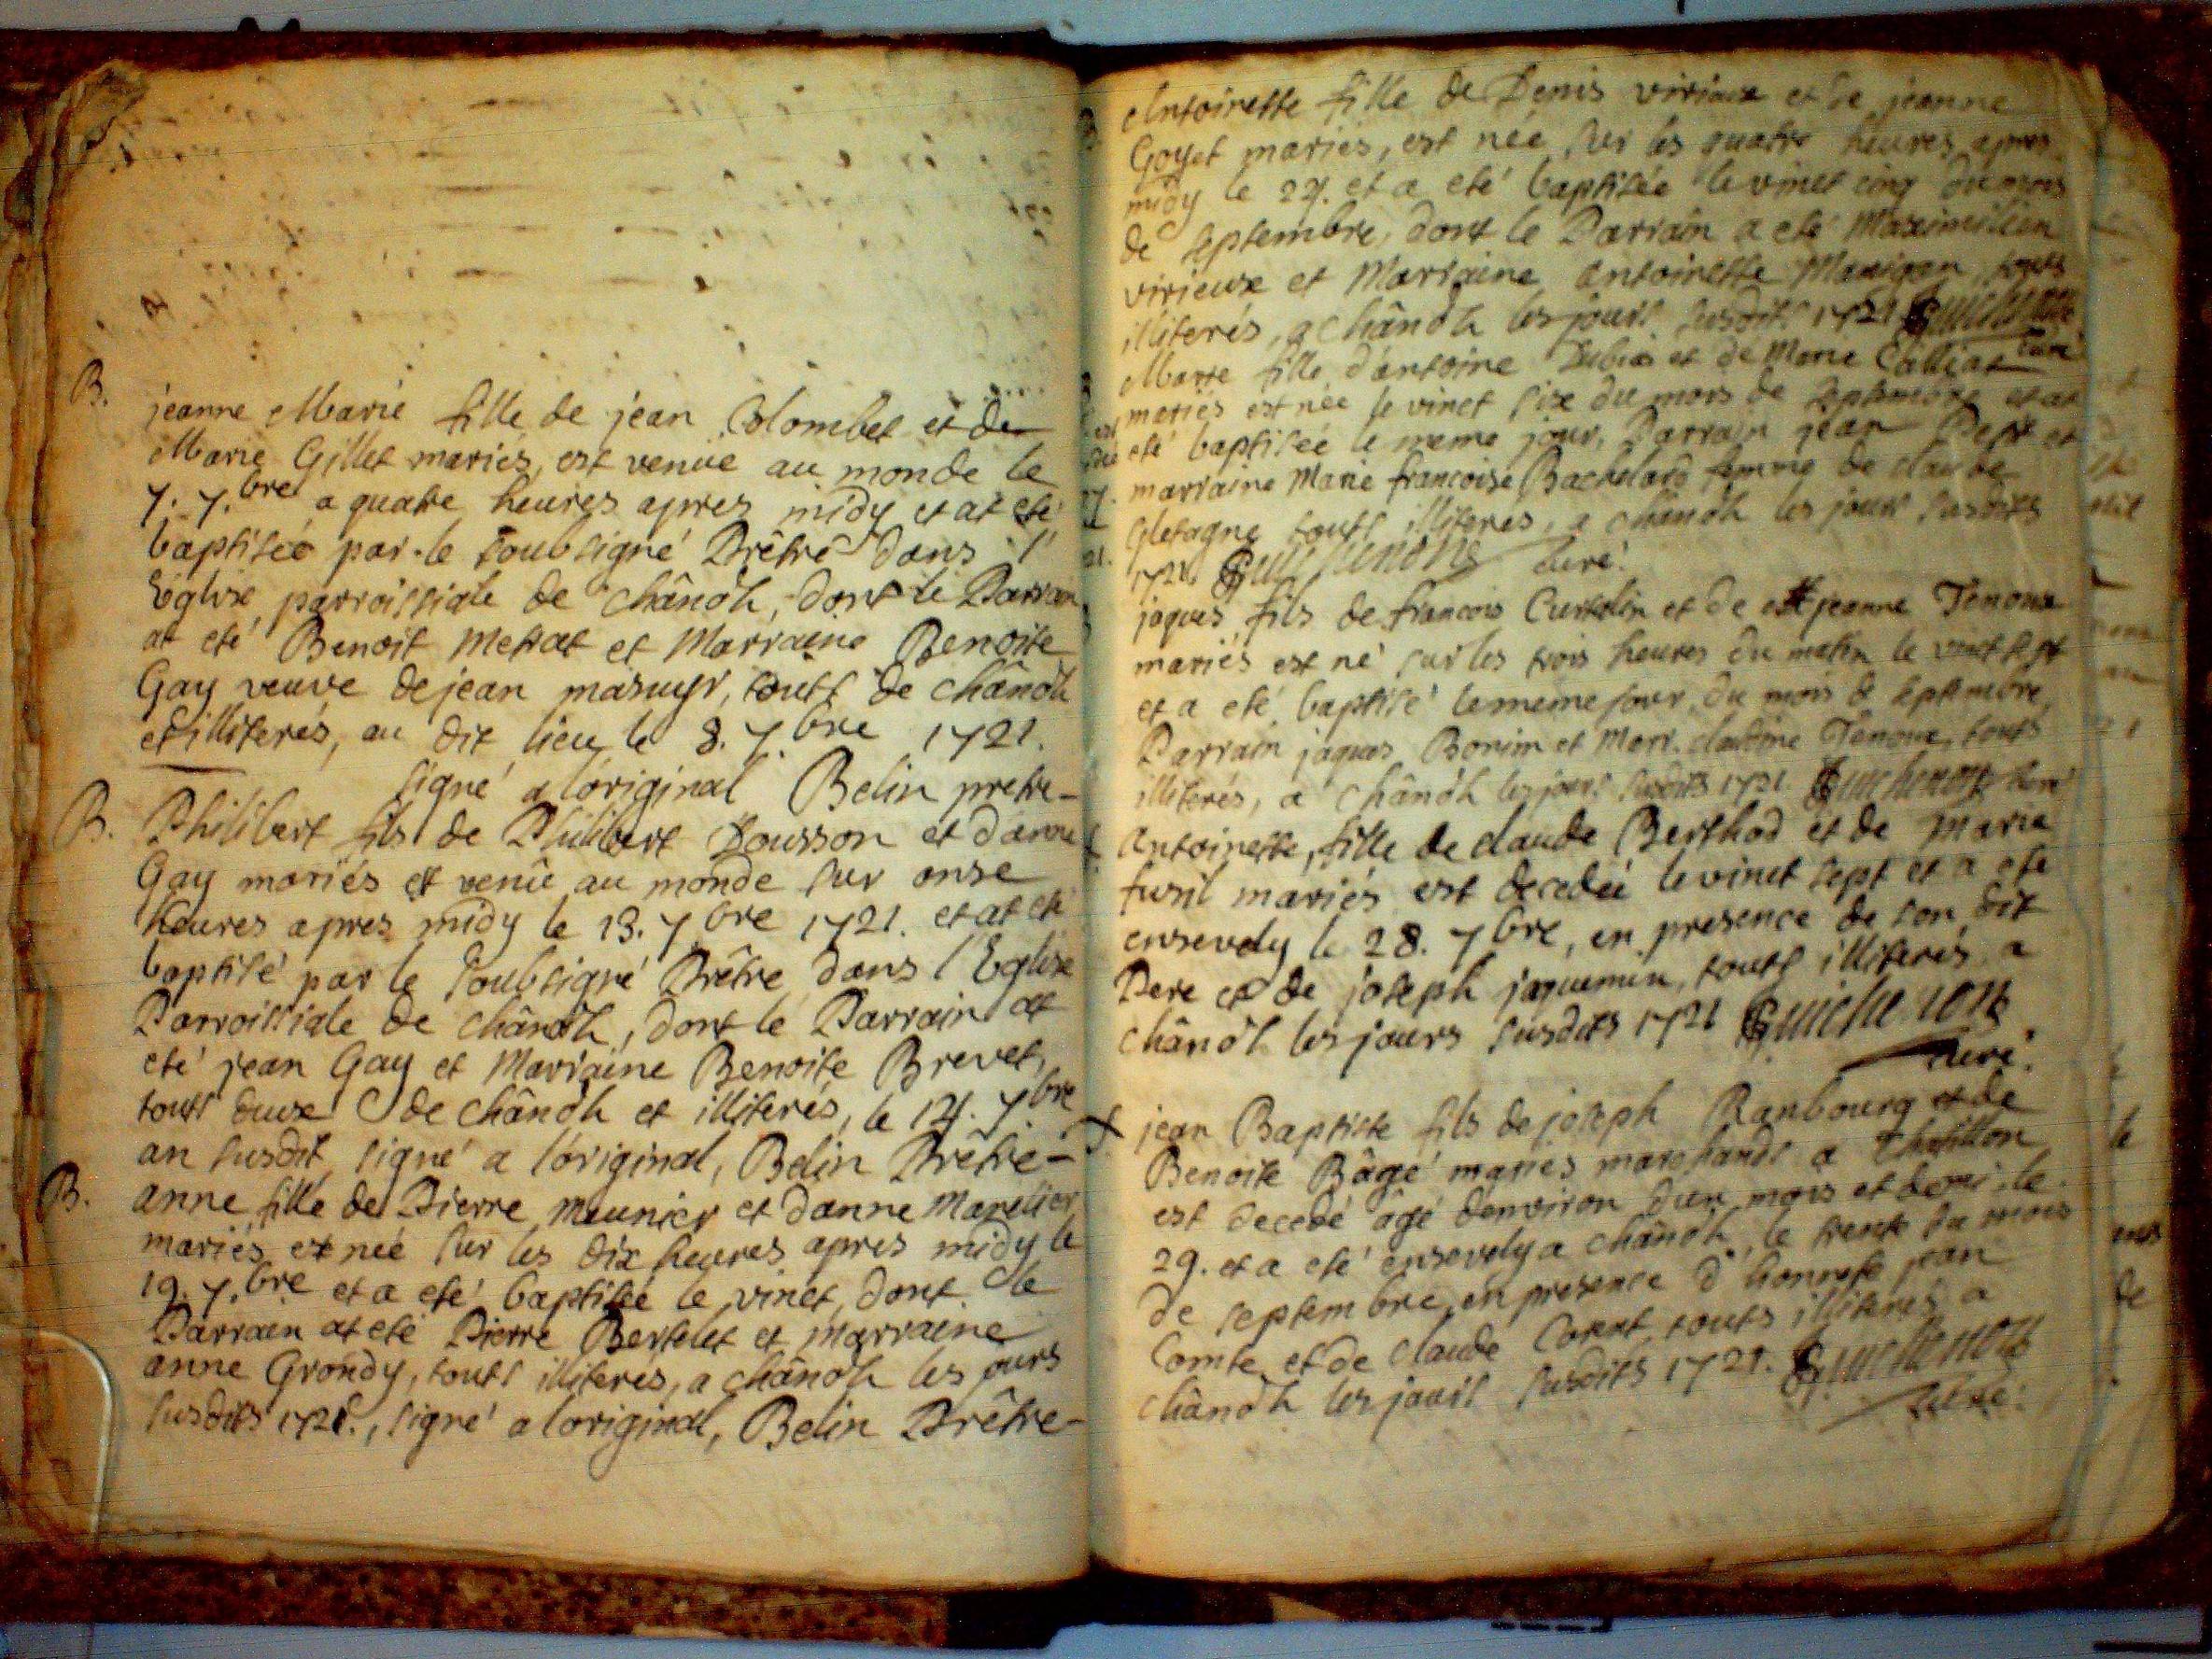 B.
jeanne Marie fille de jean Colombet et de
Marie Gillet mariés, est venüe au monde le
7. 7.bre a quatre heures apres midy et at eté
baptisée par le soubsigné Prêtre dans l'
Eglise parroissiale de chânoh, dont le Parrain
at eté Benoit Metrat et Marraine Benoite
Gay veuve de jean masuyr, touts de chânoh
et illiterés, au dit lieu le 8. 7.bre 1721.
signé a l'original Belin pretre-
B. Philibert fils de Philibert Pousson et d'anne
Gay mariés et venû au monde sur onse
heures apres midy le 13. 7bre 1721. et at eté
baptisé par le soubsigné Prêtre dans l'Eglise
Parroissiale de chânoh, dont le Parrain at
eté jean Gay et Marraine Benoite Brevet,
touts deux de chânoh et illiterés, le 14. 7.bre
an susdit, signé a l'original, Belin Prêtre-
B. anne fille de Pierre Meunier et d'anne
mariés et née sur les dix heures apres midy le
19. 7.bre et a eté baptisée le vinct, dont le
Parrain at eté Pierre Bertelet et marraine
anne Grondy, touts illiterés, a chânoh les jours
susdits 1721., signé a l'original, Belin Prêtre-
Antoinette fille de Denis virieux et de jeanne
Goyet mariés, est née sur les quatre heures apres
midy le 24. et a eté baptisée le vinct cinq du mois
de septembre, dont le Parrain a eté Maximilien
virieux et Marraine antoinette Manigan, touts
illiterés, a chânoh les jours susdits 1721 Guichenon
curé
Marie fille d'antoine Dubias et de Marie Calliat
mariés est née le vinct six du mois de septembre et at
eté baptisée le meme jour, Parrain jean et
marraine Marie francoise Bachelard femme de claude
touts illiterés, a chânoh les jours susdits
1721. Guichenon curé.
jaques fils de francois Curtelin et de jeanne Tenoux
mariés est né sur les trois heures du matin le vinct sept
et a eté baptisé le meme jour du mois de septembre,
Parrain jaques Bonim et Marr. claudine Tenoux, touts
illiterés, a chânoh les jours susdits 1721 Guichenon curé
Antoinette, fille de claude Berthod et de Marie
fusil mariés est decedée le vinct sept et a eté
ensevely le 28. 7bre, en presence de son dit
Pere et de joseph jaquemin, touts illiterés a
chânoh les jours susdits 1721 Guichenon
curé.
jean Baptiste fils de joseph Ranbourg et de
Benoite Bâgé mariés marchands a Chatillon
est decedé âgé d'environ d'un mois et demi le
29. et a eté ensevely a chânoh, le trente du mois
de septembre, en presence d'honneste jean
Comte et de claude touts illiterés a
chânoh les jours susdits 1721. Guichenon
curé.